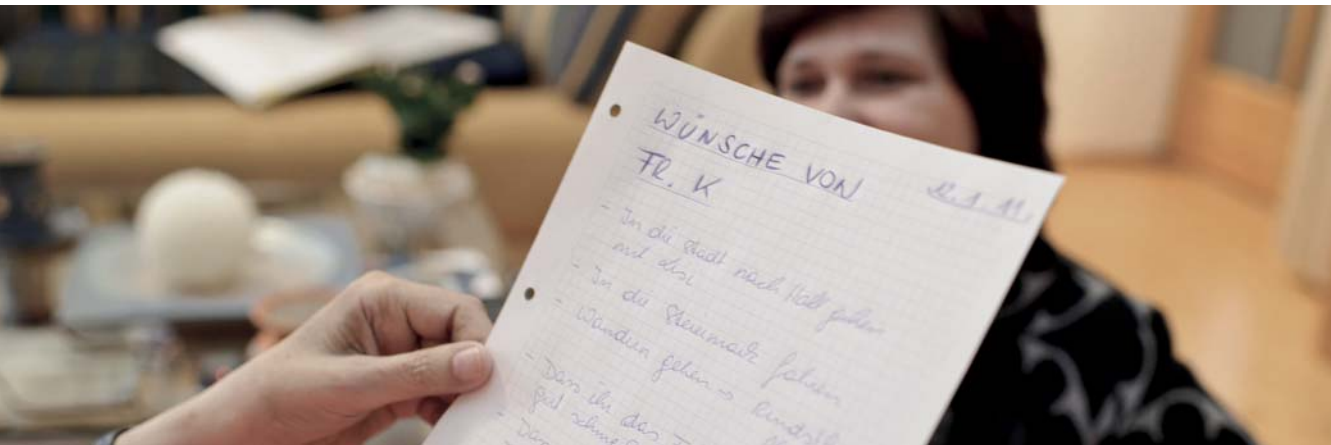 WÜNSCHE VON
FR. K
12.1.11
- In die Stadt nach Hall gehen
mit
- In die Steiermark fahren
- Wandern gehen →
- Dass ihr das
gut